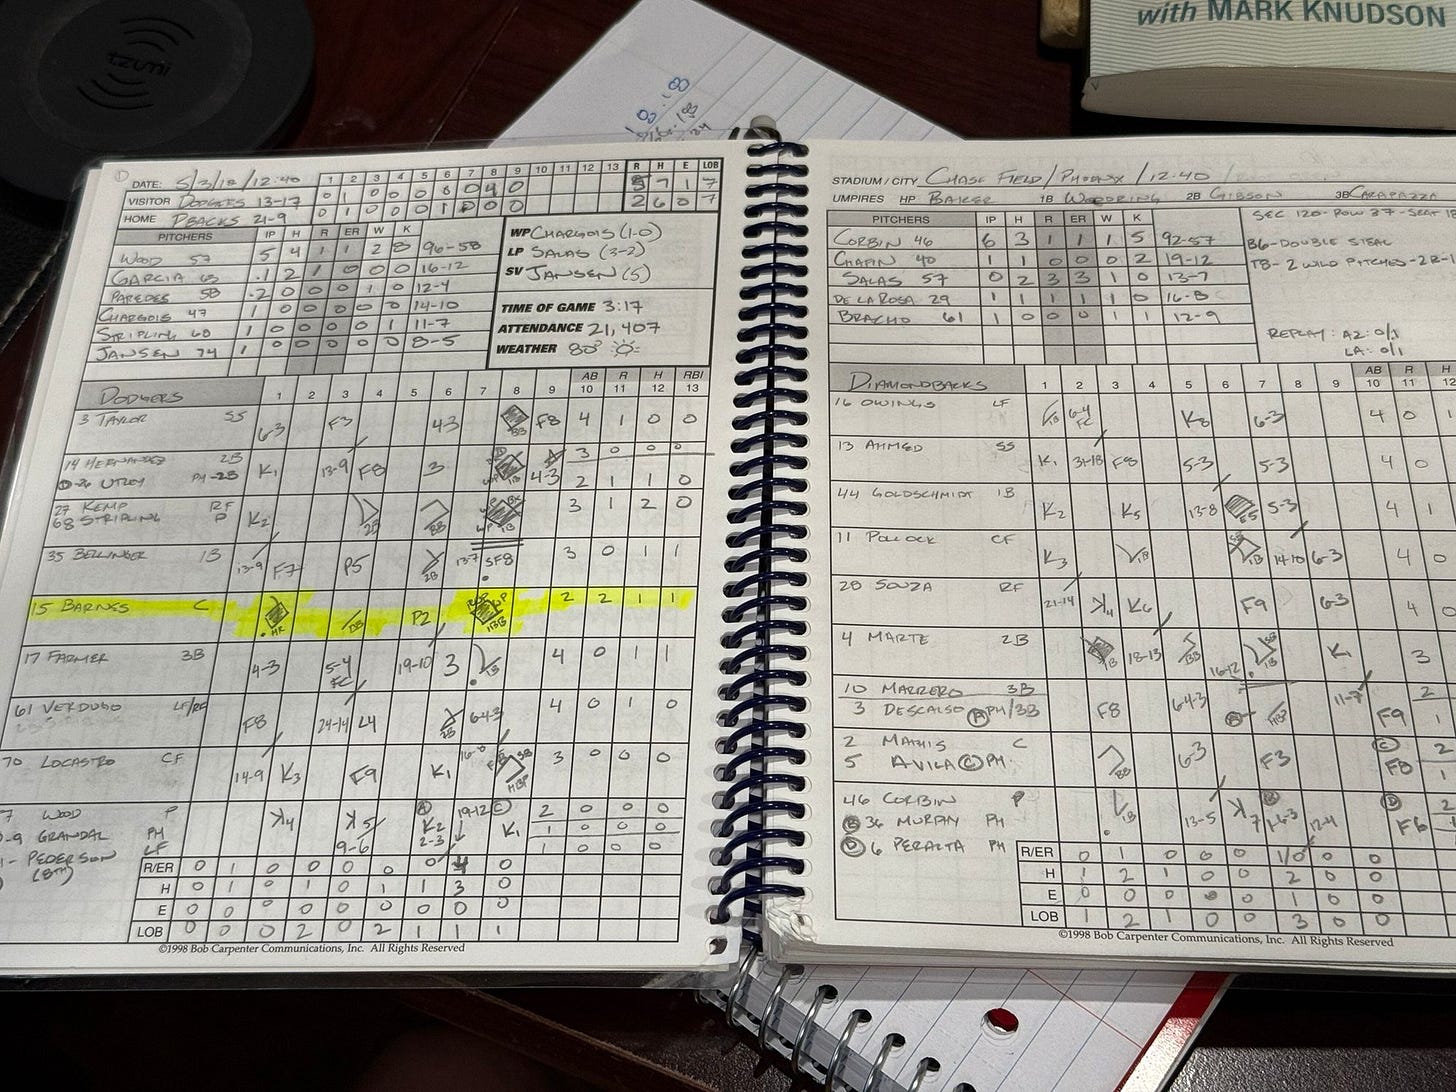 tzumi
with MARK KNUDSON
DATE: 5/3/18/12:40 1 2 3 4 5 6 7 8 9 10 11 12 13 R H E LOB
VISITOR DODGERS 13-17 0 1 0 0 0 0 0 4 0 5 7 1 7
HOME DBACKS 21-9 0 1 0 0 0 1 0 0 0 2 6 0 7
PITCHERS IP H R ER W K
WOOD 57 5 4 1 1 2 8 96-58
GARCIA 63 .1 2 1 0 0 0 16-12
PAREDES 58 .2 0 0 0 1 0 12-4
CHARGOIS 47 1 0 0 0 0 0 14-10
STRIPLING 68 1 0 0 0 0 1 11-7
JANSEN 74 1 0 0 0 0 0 8-5
WP CHARGOIS (1-0)
LP SALAS (3-2)
SV JANSEN (5)
TIME OF GAME 3:17
ATTENDANCE 21,407
WEATHER 80°
DODGERS 1 2 3 4 5 6 7 8 9 AB 10 R 11 H 12 RBI 13
3 TAYLOR SS 6-3 F3 4-3 BB F8 4 1 0 0
14 HERNANDEZ 2B K1 13-9 F8 3 4-3 3 0 0 0
26 UTLEY PH-2B 2 1 1 0
27 KEMP RF K2 2B 1B 3 1 2 0
68 STRIPLING P
35 BELLINGER 1B 13-9 F7 P5 2B 13-7 SF8 3 0 1 1
15 BARNES C HR BB P2 IBB 2 2 1 1
17 FARMER 3B 4-3 5-4 FC 19-10 3 1B 4 0 1 1
61 VERDUGO LF/RF F8 24-14 L4 1B 6-4-3 4 0 1 0
70 LOCASTRO CF 14-9 K3 F9 K1 16-8 HBP 3 0 0 0
7 WOOD P K4 K5 A K2 19-12 C K1 2 0 0 0
GRANDAL PH 9-6 2-3 1 0 0 0
PEDERSON LF 1 0 0 0
(8TH)
R/ER 0 1 0 0 0 0 0 4 0
H 0 1 0 1 0 1 1 3 0
E 0 0 0 0 0 0 0 0 0
LOB 0 0 0 2 0 2 1 1 1
©1998 Bob Carpenter Communications, Inc. All Rights Reserved
STADIUM / CITY CHASE FIELD / PHOENIX / 12:40
UMPIRES HP BAKER 1B WOODRING 2B GIBSON 3B CARAPAZZA
PITCHERS IP H R ER W K
CORBIN 46 6 3 1 1 1 5 92-57
CHAFIN 40 1 1 0 0 0 2 19-12
SALAS 57 0 2 3 3 1 0 13-7
DE LA ROSA 29 1 1 1 1 1 0 16-8
BRACHO 61 1 0 0 0 1 1 12-9
SEC 120-ROW 37-SEAT
B6-DOUBLE STEAL
T8-2 WILD PITCHES-2R-1
REPLAY: AZ: 0/1
LA: 0/1
DIAMONDBACKS 1 2 3 4 5 6 7 8 9 AB 10 R 11 H 12
16 OWINGS LF 1B 6-4 FC K8 6-3 4 0
13 AHMED SS K1 31-18 F8 5-3 5-3 4 0
44 GOLDSCHMIDT 1B K2 K5 13-8 E5 5-3 4 1
11 POLLOCK CF K3 1B 1B 14-10 6-3 4 0
28 SOUZA RF 21-14 K4 K6 F9 6-3 4 0
4 MARTE 2B 1B 18-13 BB 16-12 1B K1 3
10 MARRERO 3B F8 6-4-3 A HBP 11-7 2
3 DESCALSO A PH/3B F9 1
2 MATHIS C BB 6-3 F3 C 2
5 AVILA C PH F8 1
46 CORBIN P 1B 13-5 K7 12-4 D 2
B 36 MURPHY PH F6
D 6 PERALTA PH
R/ER 0 1 0 0 0 1/0 0 0
H 1 2 1 0 0 2 0 0
E 0 0 0 0 0 1 0 0
LOB 1 2 1 0 0 3 0 0
©1998 Bob Carpenter Communications, Inc. All Rights Reserved